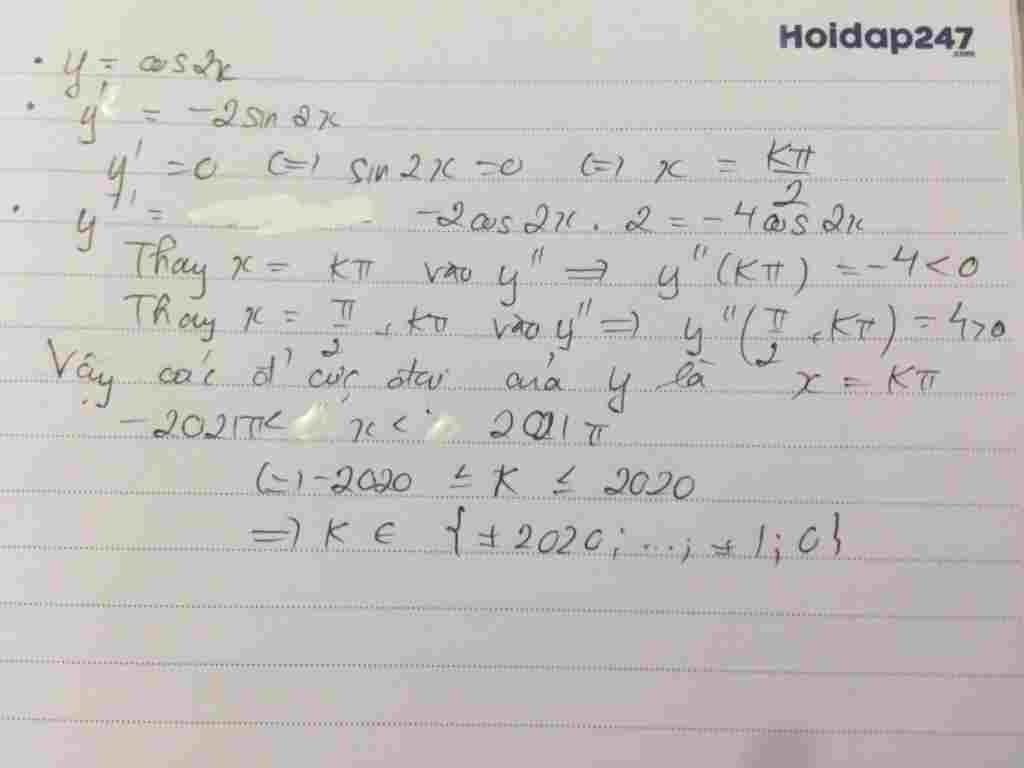 Hoidap247
.com
• y = cos2x
• y' = -2sin2x
y' = 0 (=) sin2x = 0 (=) x = Kπ/2
• y'' = -2cos2x. 2 = -4cos2x
Thay x = Kπ vào y'' => y''(Kπ) = -4 < 0
Thay x = π/2 + Kπ vào y'' => y''(π/2 + Kπ) = 4 > 0
Vậy các đ' cực đại của y là x = Kπ
-2021π < x < 2021π
(=) -2020 ≤ K ≤ 2020
=> K ∈ {±2020; ...; ±1; 0}